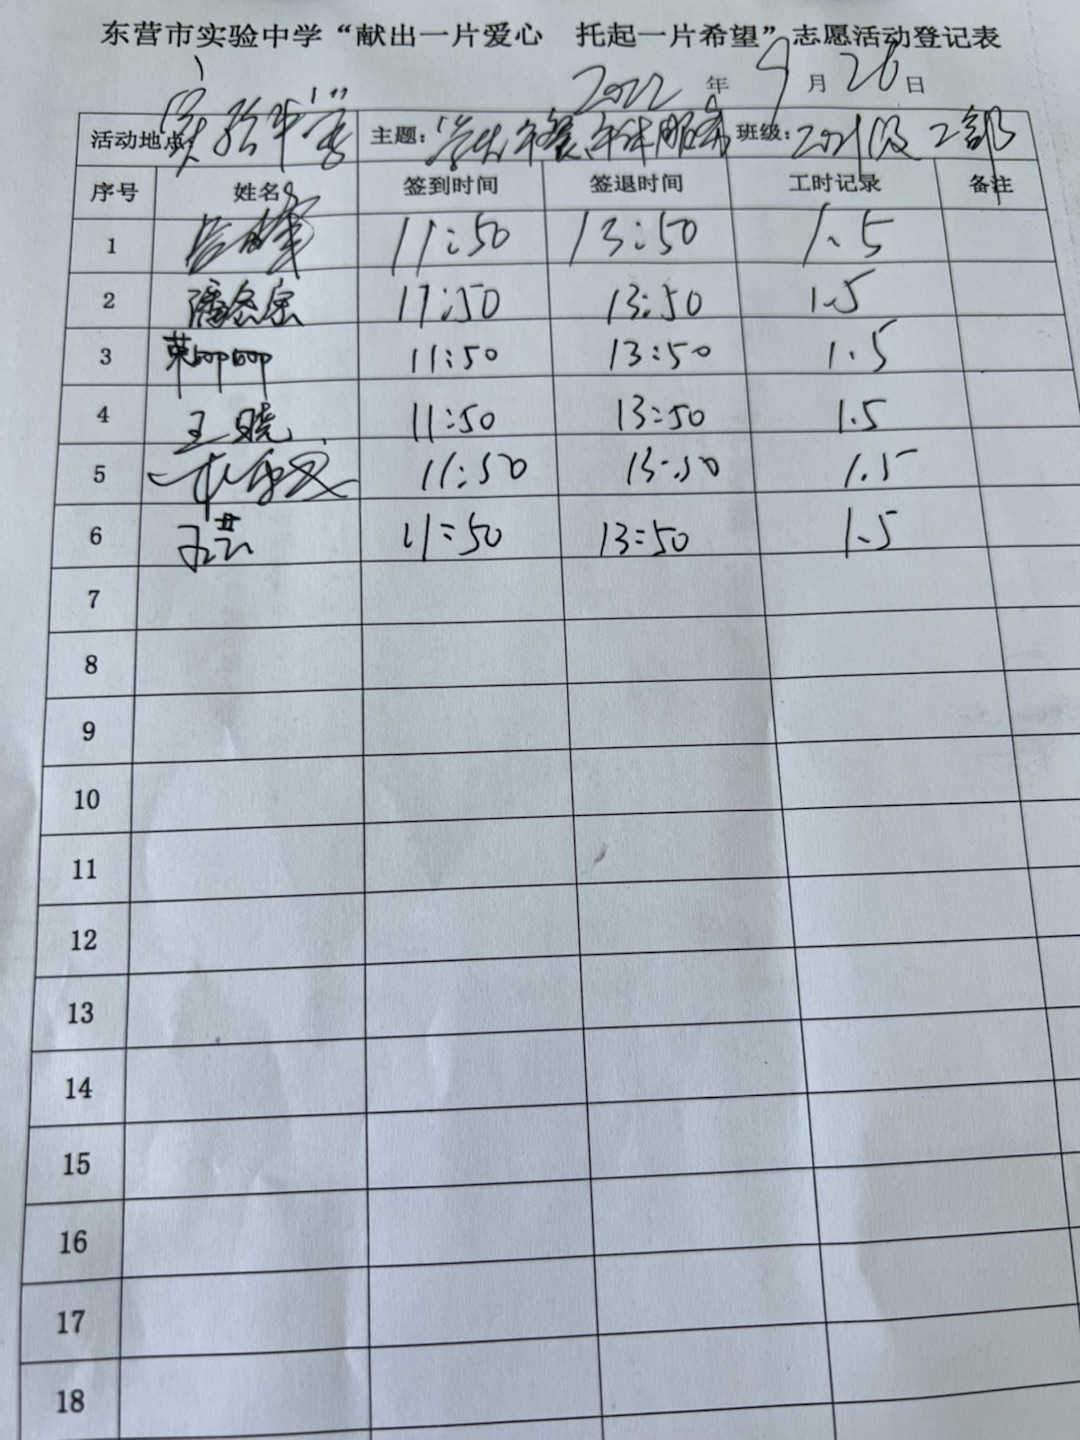 东营市实验中学“献出一片爱心 托起一片希望”志愿活动登记表
2022年9月26日
活动地点:实验中学 主题:学生午餐、午休服务 班级:2021级2部
序号 姓名 签到时间 签退时间 工时记录 备注
1 11:50 13:50 1.5
2 11:50 13:50 1.5
3 11:50 13:50 1.5
4 王晓 11:50 13:50 1.5
5 11:50 13:50 1.5
6 11:50 13:50 1.5
7
8
9
10
11
12
13
14
15
16
17
18